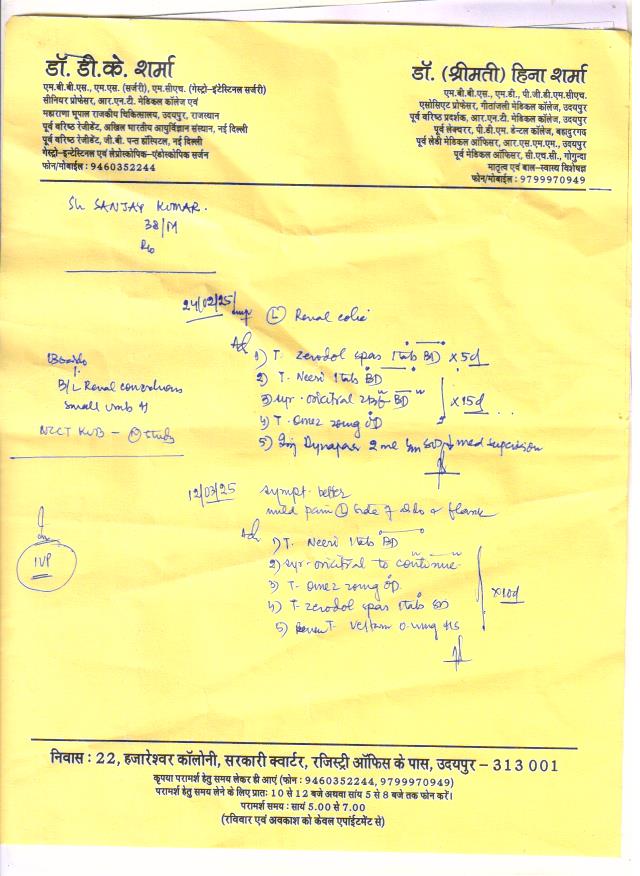 डॉ. डी.के. शर्मा
एम.बी.बी.एस., एम.एस. (सर्जरी), एम.सीएच. (गेस्ट्रो-इंटेस्टिनल सर्जरी)
सीनियर प्रोफेसर, आर.एन.टी. मेडिकल कॉलेज एवं
महाराणा भूपाल राजकीय चिकित्सालय, उदयपुर, राजस्थान
पूर्व वरिष्ठ रेजीडेंट, अखिल भारतीय आयुर्विज्ञान संस्थान, नई दिल्ली
पूर्व वरिष्ठ रेजीडेंट, जी.बी. पन्त हॉस्पिटल, नई दिल्ली
गेस्ट्रो-इन्टेस्टिनल एवं लेप्रोस्कोपिक-एंडोस्कोपिक सर्जन
फोन/मोबाईल : 9460352244
डॉ. (श्रीमती) हिना शर्मा
एम.बी.बी.एस., एम.डी., पी.जी.डी.एम.सीएच.
एसोसिएट प्रोफेसर, गीतांजली मेडिकल कॉलेज, उदयपुर
पूर्व वरिष्ठ प्रदर्शक, आर.एन.टी. मेडिकल कॉलेज, उदयपुर
पूर्व लेक्चरर, पी.डी.एम. डेन्टल कॉलेज, बहादुरगढ़
पूर्व लेडी मेडिकल ऑफिसर, आर.एस.एम.एम., उदयपुर
पूर्व मेडिकल ऑफिसर, सी.एच.सी., गोगुन्दा
मातृत्व एवं बाल-स्वास्थ्य विशेषज्ञ
फोन/मोबाईल : 9799970949
Sh SANJAY KUMAR.
38/M
R/o
24/02/25
Imp (L) Renal colic
Adv
1) T. Zerodol spas 1 tab BD x 5d
2) T. Neeri 1 tab BD
3) Syr. Oricitral BD
4) T. Omez 20mg OD
x 15d
5) Inj Dynapar 2 ml Im med supervision
B/L Renal concretions
small umb H
NCCT KUB – (N) study
12/03/25
sympt. better
mild pain (L) side of abdo & flank
Adv
1) T. Neeri 1 tab BD
2) Syr. Oricitral to continue
3) T. Omez 20mg OD
4) T. Zerodol spas 1 tab
5) T. 0.4mg HS
x 10d
IVP
निवास : 22, हजारेश्वर कॉलोनी, सरकारी क्वार्टर, रजिस्ट्री ऑफिस के पास, उदयपुर – 313 001
कृपया परामर्श हेतु समय लेकर ही आएं (फोन : 9460352244, 9799970949)
परामर्श हेतु समय लेने के लिए प्रातः 10 से 12 बजे अथवा सांय 5 से 8 बजे तक फोन करें।
परामर्श समय : सायं 5.00 से 7.00
(रविवार एवं अवकाश को केवल एपॉईंटमेंट से)